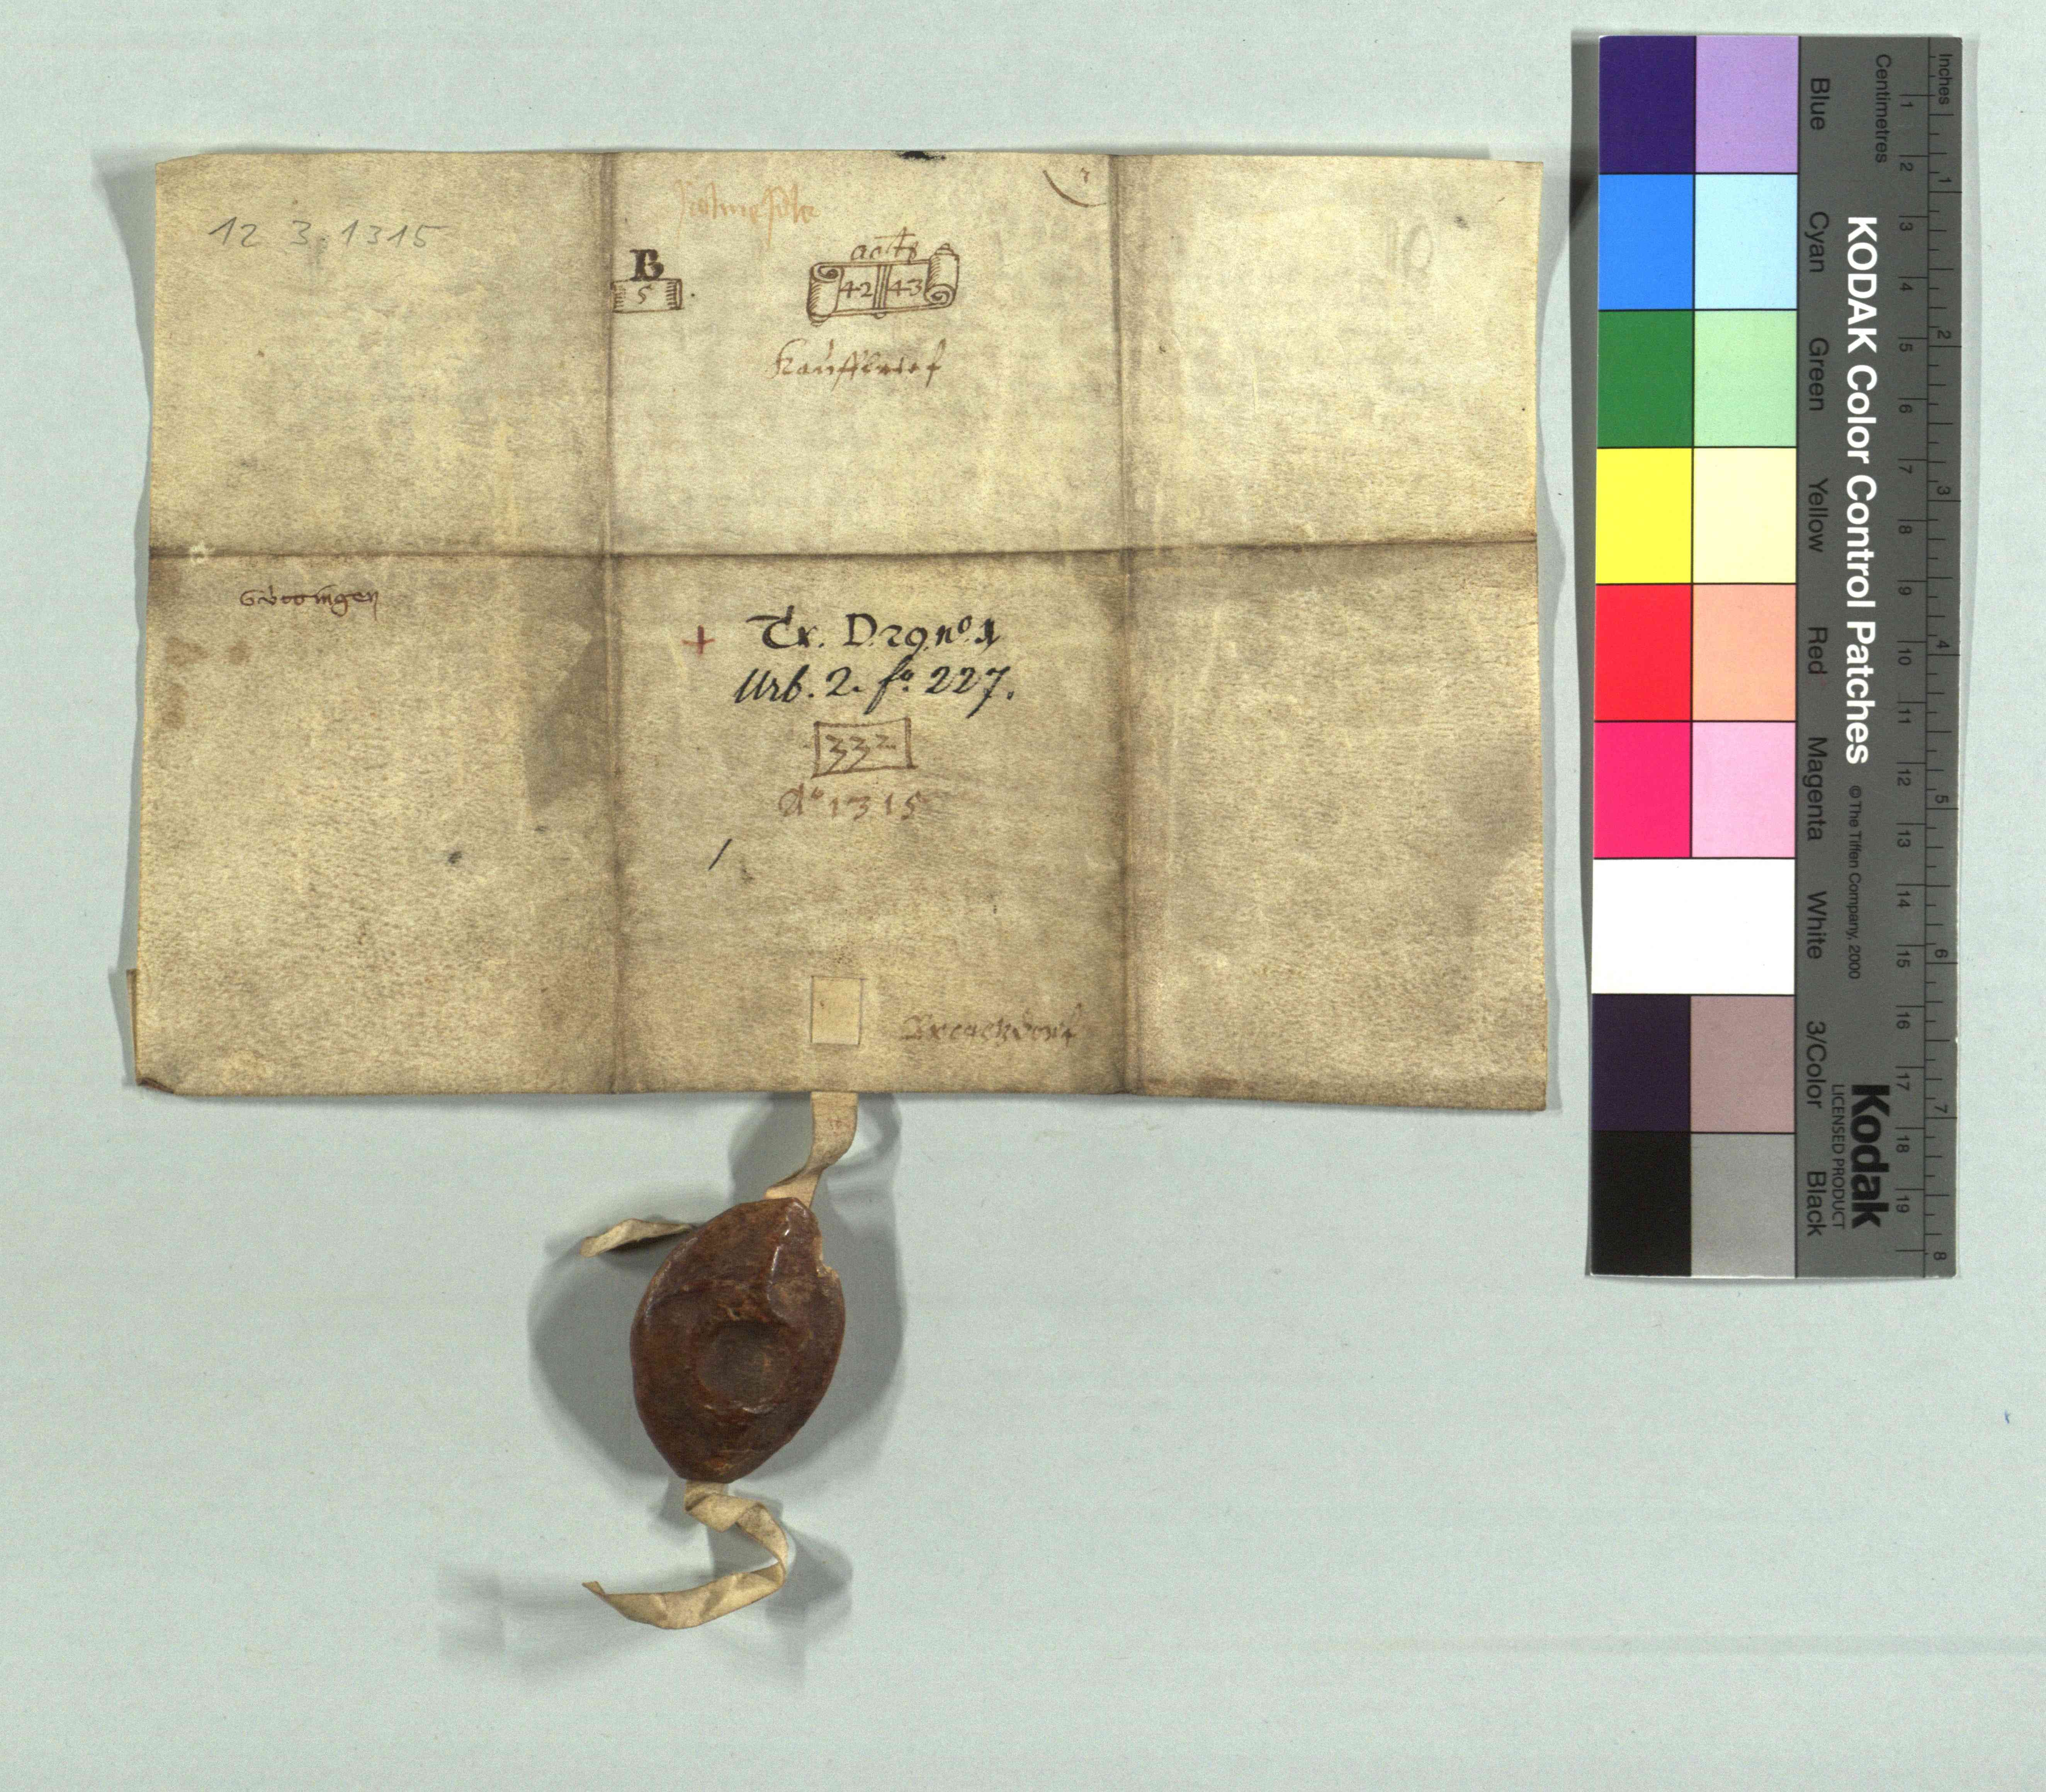 12 3. 1315
B
5
42 43
Kauffbrief
Güttingen
+ Tr. D. 29. no. 1
Urb. 2. fo. 227.
332
Ao 1315
Inches
Centimetres
1 2 3 4 5 6 7 8 9 10 11 12 13 14 15 16 17 18 19
1 2 3 4 5 6 7 8
KODAK Color Control Patches
© The Tiffen Company, 2000
Kodak
LICENSED PRODUCT
Blue Cyan Green Yellow Red Magenta White 3/Color Black